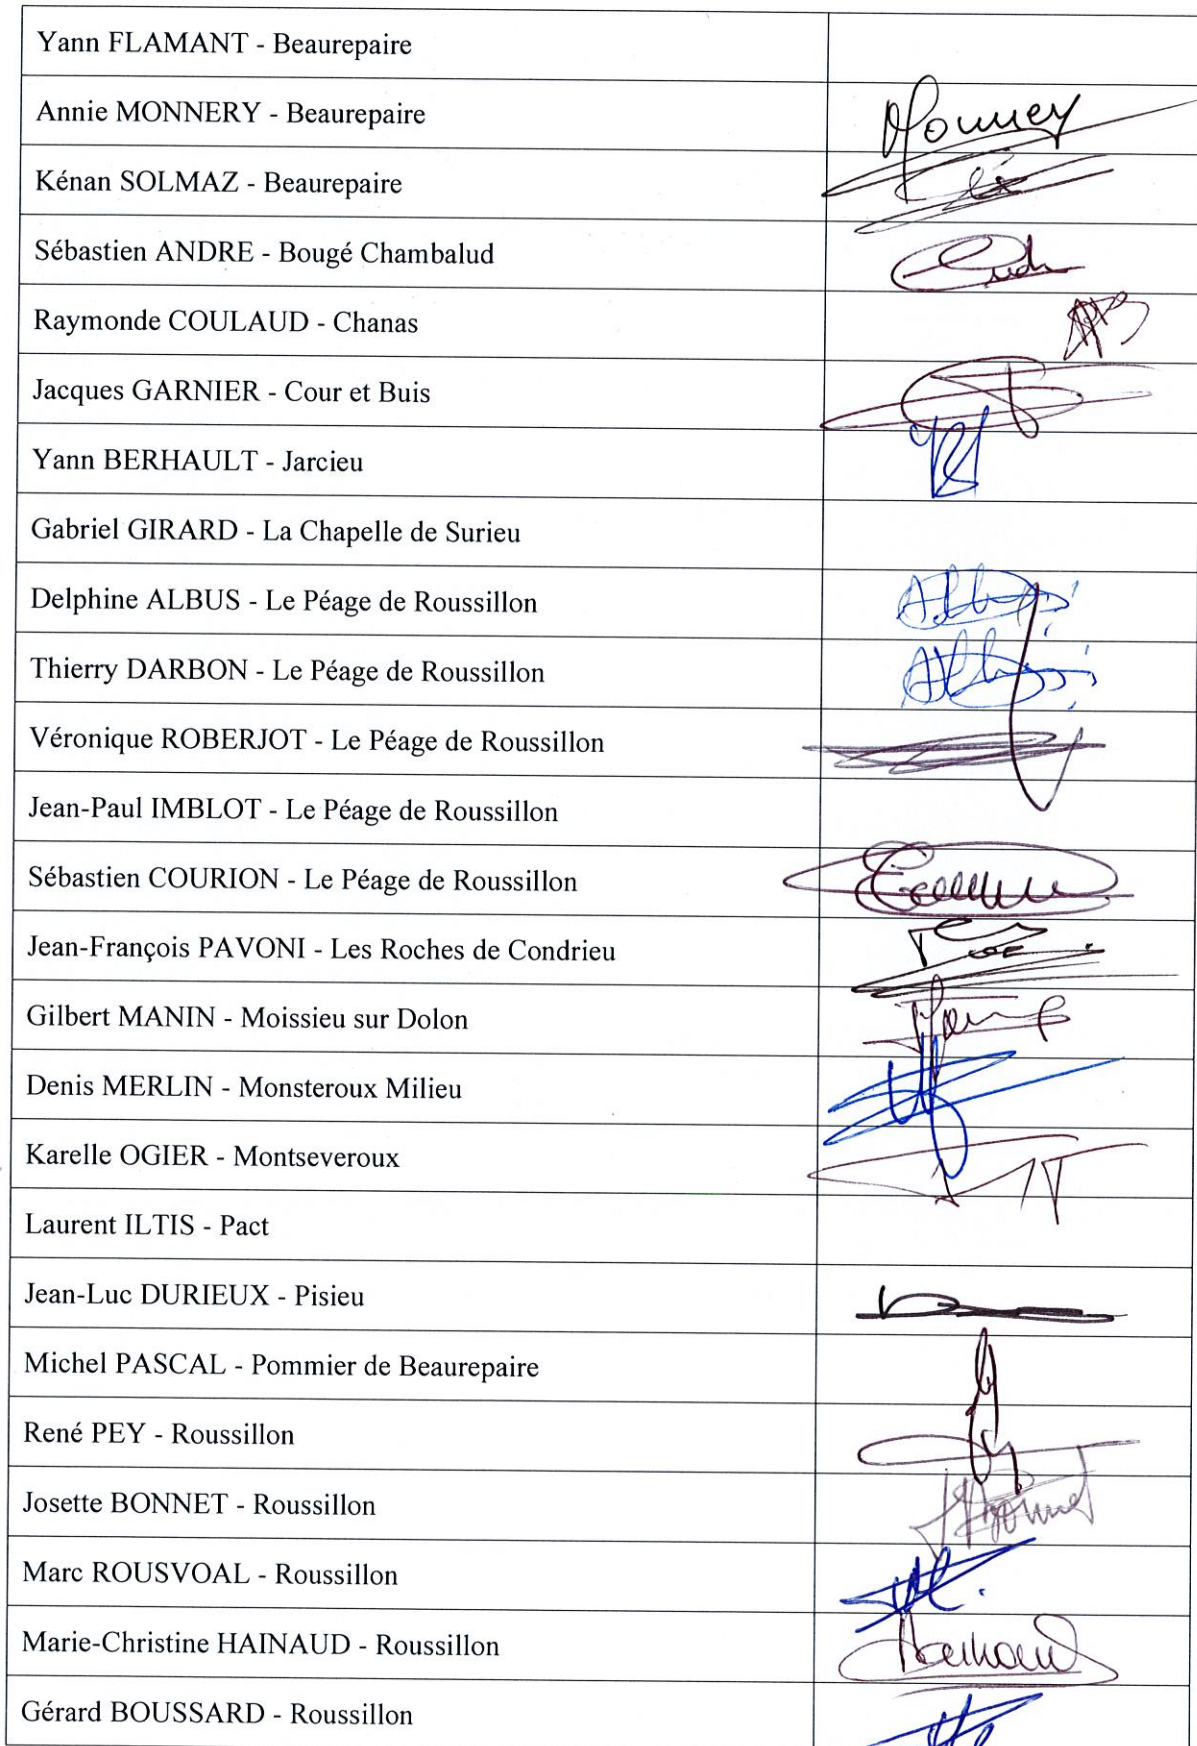 Yann FLAMANT - Beaurepaire
Annie MONNERY - Beaurepaire
Kénan SOLMAZ - Beaurepaire
Sébastien ANDRE - Bougé Chambalud
Raymonde COULAUD - Chanas
Jacques GARNIER - Cour et Buis
Yann BERHAULT - Jarcieu
Gabriel GIRARD - La Chapelle de Surieu
Delphine ALBUS - Le Péage de Roussillon
Thierry DARBON - Le Péage de Roussillon
Véronique ROBERJOT - Le Péage de Roussillon
Jean-Paul IMBLOT - Le Péage de Roussillon
Sébastien COURION - Le Péage de Roussillon
Jean-François PAVONI - Les Roches de Condrieu
Gilbert MANIN - Moissieu sur Dolon
Denis MERLIN - Monsteroux Milieu
Karelle OGIER - Montseveroux
Laurent ILTIS - Pact
Jean-Luc DURIEUX - Pisieu
Michel PASCAL - Pommier de Beaurepaire
René PEY - Roussillon
Josette BONNET - Roussillon
Marc ROUSVOAL - Roussillon
Marie-Christine HAINAUD - Roussillon
Gérard BOUSSARD - Roussillon